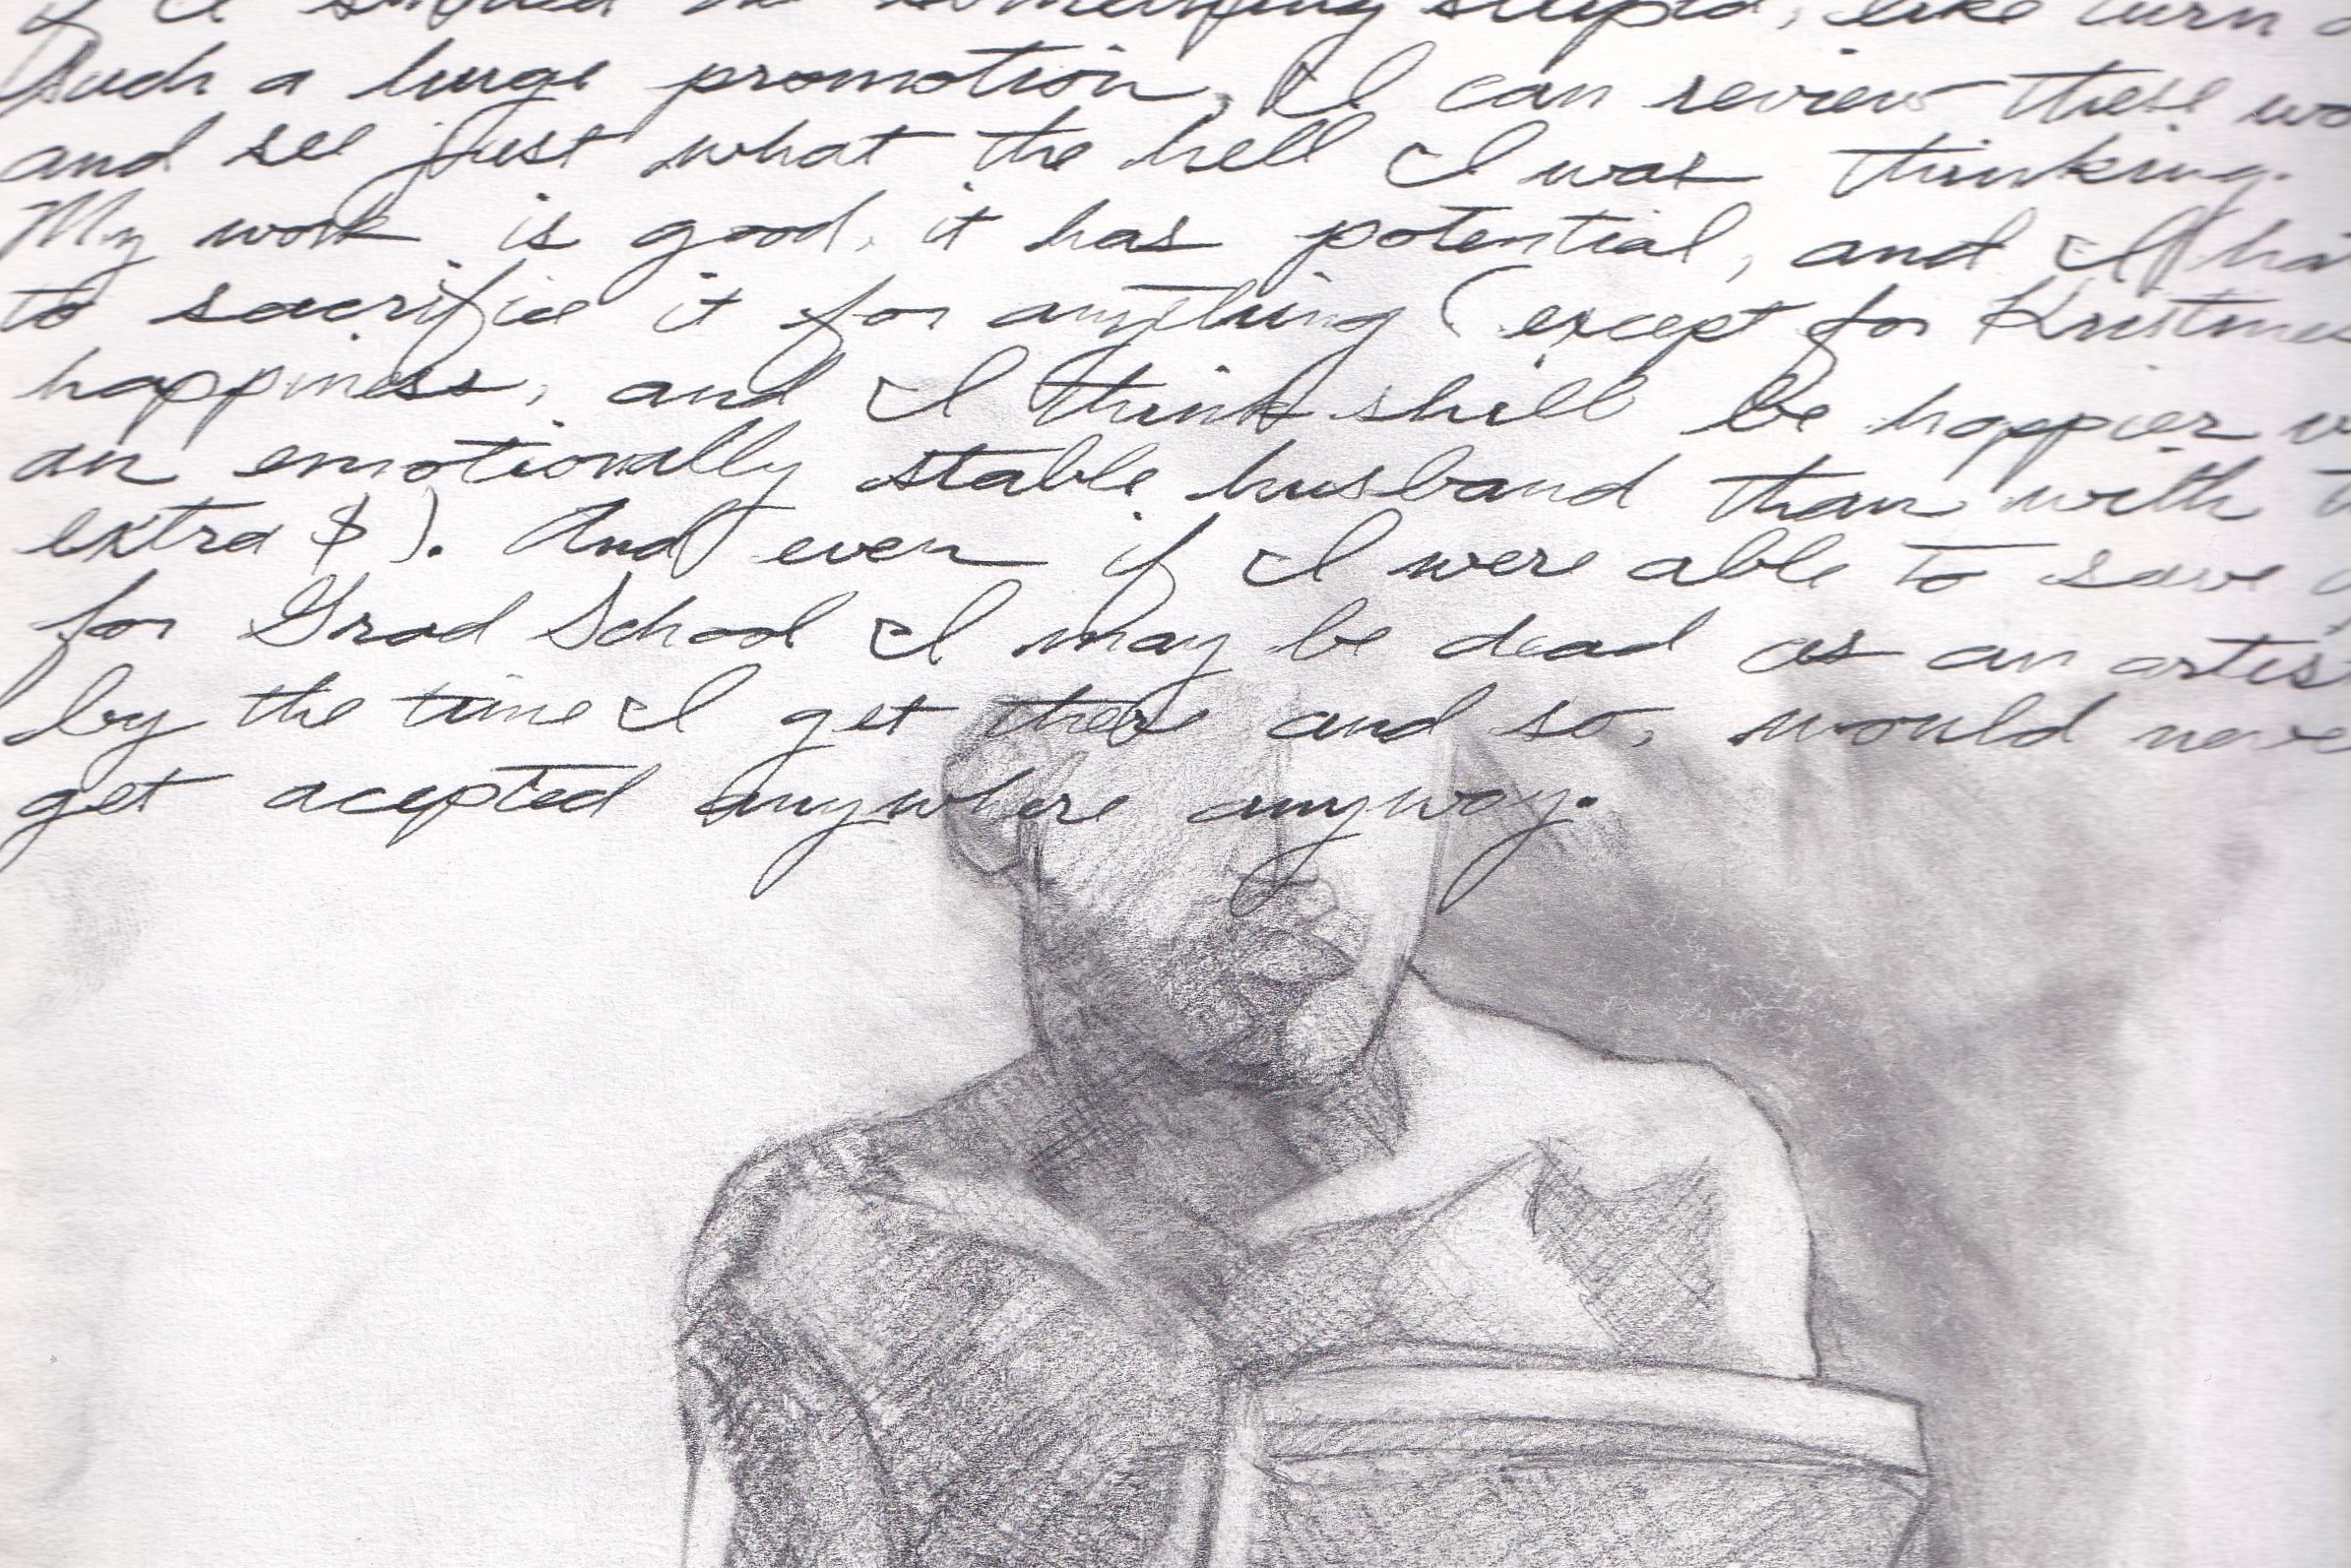 something stupid, like turn
Such a large promotion, I can review these
and see just what the hell I was thinking.
My work is good, it has potential, and I
to sacrifice it for anything (except for
happiness, and I think shill be happier
an emotionally stable husband than with
extra $). And even if I were able to save
for Grad School I may be dead as an artis
by the time I get there and so, would neve
get acepted anywhere anyway.